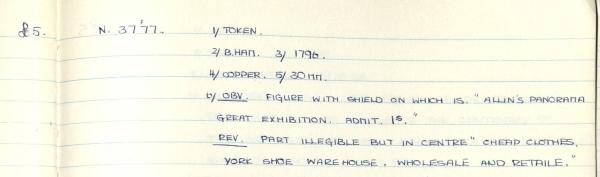 £5. N. 37'77. 1/ TOKEN.
2/ B.HAM. 3/ 1796.
4/ COPPER. 5/ 30 MM.
6/ OBV. FIGURE WITH SHIELD ON WHICH IS. "ALLIN'S PANORAMA
GREAT EXHIBITION. ADMIT. 1s."
REV. PART ILLEGIBLE BUT IN CENTRE "CHEAP CLOTHES,
YORK SHOE WAREHOUSE, WHOLESALE AND RETAILE."